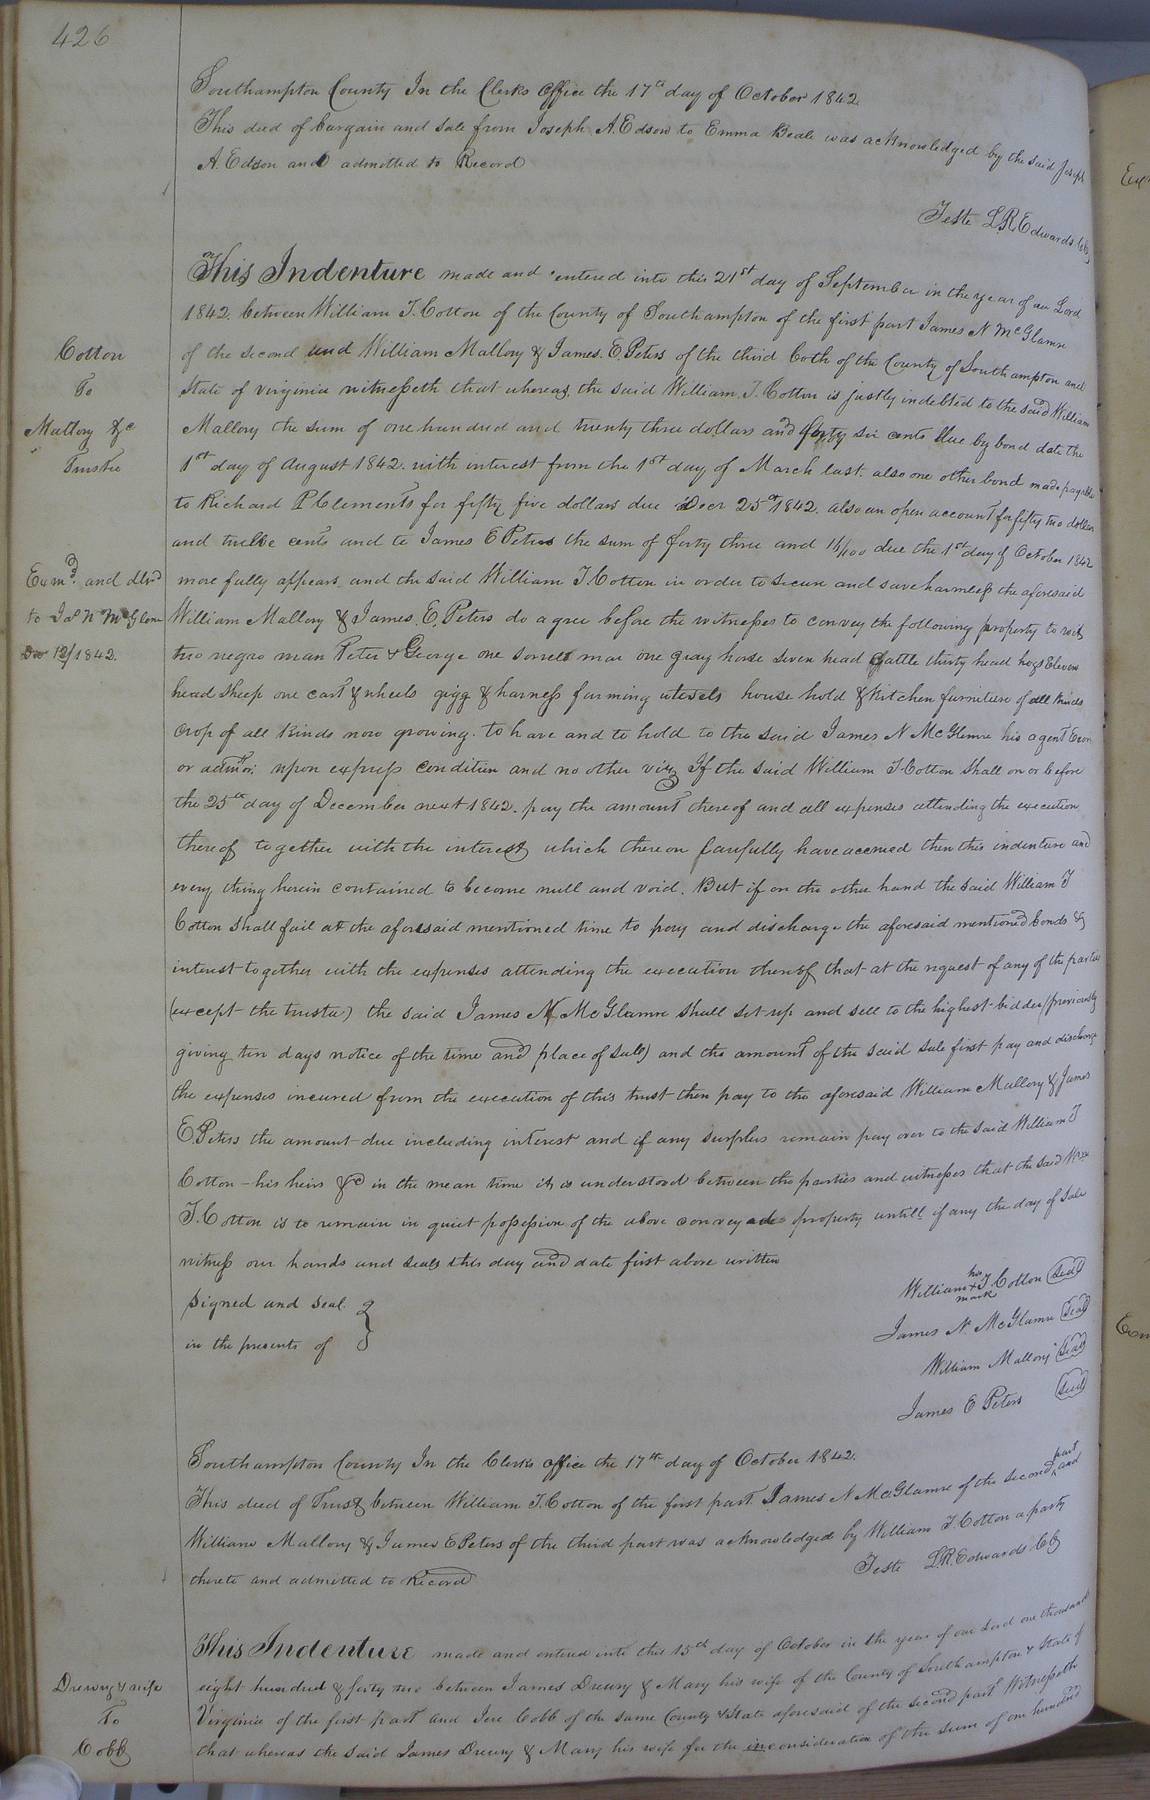 426
Southampton County In the Clerks Office the 17th day of October 1842
This deed of bargain and sale from Joseph A. Edson to Emma Beale was acknowledged by the said Joseph
A. Edson and admitted to Record
Teste L.R. Edwards Clk
This Indenture made and entered into this 21st day of September in the year of our Lord
1842 between William T. Cotton of the County of Southampton of the first part James N McGlamre
Cotton
To
Mallory &c
Trustee
of the second and William Mallory & James. E. Peters of the third both of the County of Southampton and
State of virginia witnesseth that whereas, the said William. T. Cotton is justly indebted to the said William
Mallory the sum of one hundred and twenty three dollars and forty six cents due by bond date the
1st day of August 1842. with interest from the 1st day of March last. also one other bond made payable
to Richard P Clements for fifty five dollars due Decr 25th 1842. also an open account for fifty two dollars
and twelve cents and to James E Peters the sum of forty three and 11/100 due the 1st day of October 1842
Exmd. and dlvd
to Jas N McGlamre
Dec 12/1842.
more fully appears, and the said William T Cotton in order to secure and save harmless the aforesaid
William Mallory & James. E. Peters do agree before the witnesses to convey the following property to wit,
two negro man Peter & George one sorrell mar one gray horse seven head cattle thirty head hogs Eleven
head sheep one cart & wheels gigg & harness farming utensels house hold & kitchen furniture of all kinds
crop of all kinds now growing. to have and to hold to the said James N McGlamre his agent Exon
or admor; upon express condition and no other viz, If the said William T Cotton shall on or before
the 25th day of December next 1842. pay the amount thereof and all expenses attending the execution
thereof together with the interest which thereon lawfully have accrued then this indenture and
every thing herein contained to become null and void. But if on the other hand the said William T
Cotton shall fail at the aforesaid mentioned time to pay and discharge the aforesaid mentioned bonds &
interest together with the expenses attending the execution thereof that at the request of any of the parties
(except the trustee) the said James N McGlamre shall set up and sell to the highest bidder (previously
giving ten days notice of the time and place of sale) and the amount of the said sale first pay and discharge
the expenses incured from the execution of this trust then pay to the aforesaid William Mallory & James
E. Peters the amount due including interest and if any surplus remain pay over to the said William T
Cotton - his heirs &c in the mean time it is understood between the parties and witnesses that the said Wm
T. Cotton is to remain in quiet possession of the above conveyade property untill if any the day of sale
witness our hands and seals this day and date first above written
signed and seal.
in the presents of
William his + mark T. Cotton Seal
James N. McGlamre Seal
William Mallory Seal
James E Peters Seal
Southampton County In the Clerks office the 17th day of October 1842.
This deed of Trust between William T. Cotton of the first part. James N McGlamre of the second part and
William Mallory & James E Peters of the third part was acknowledged by William T. Cotton a party
thereto and admitted to Record
Teste L.R. Edwards Clk
This Indenture made and entered into this 15th day of October in the year of our Lord one thousand
Drewry & wife
To
Cobb
eight hundred & forty two between James Drewry & Mary his wife of the County of Southampton & State of
Virginia of the first part and Jere Cobb of the same County & State aforesaid of the second part Witnesseth
that whereas the said James Drewry & Mary his wife for the inconsideration of the sum of one hundred